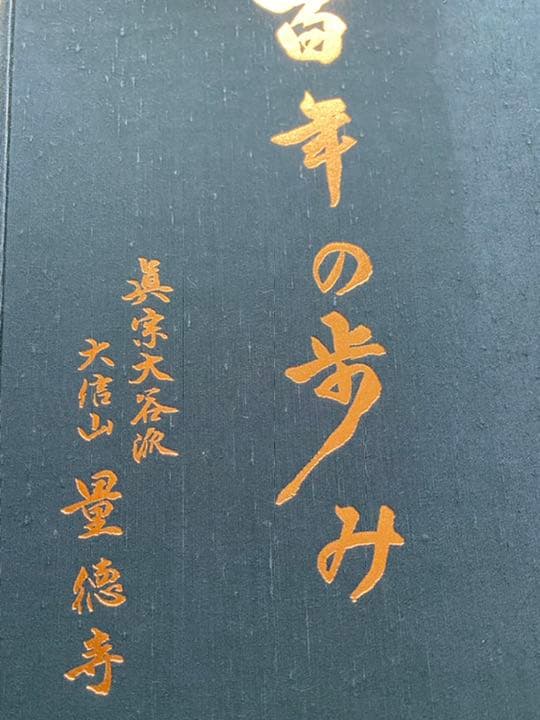 百年の歩み
眞宗大谷派
大信山 量徳寺